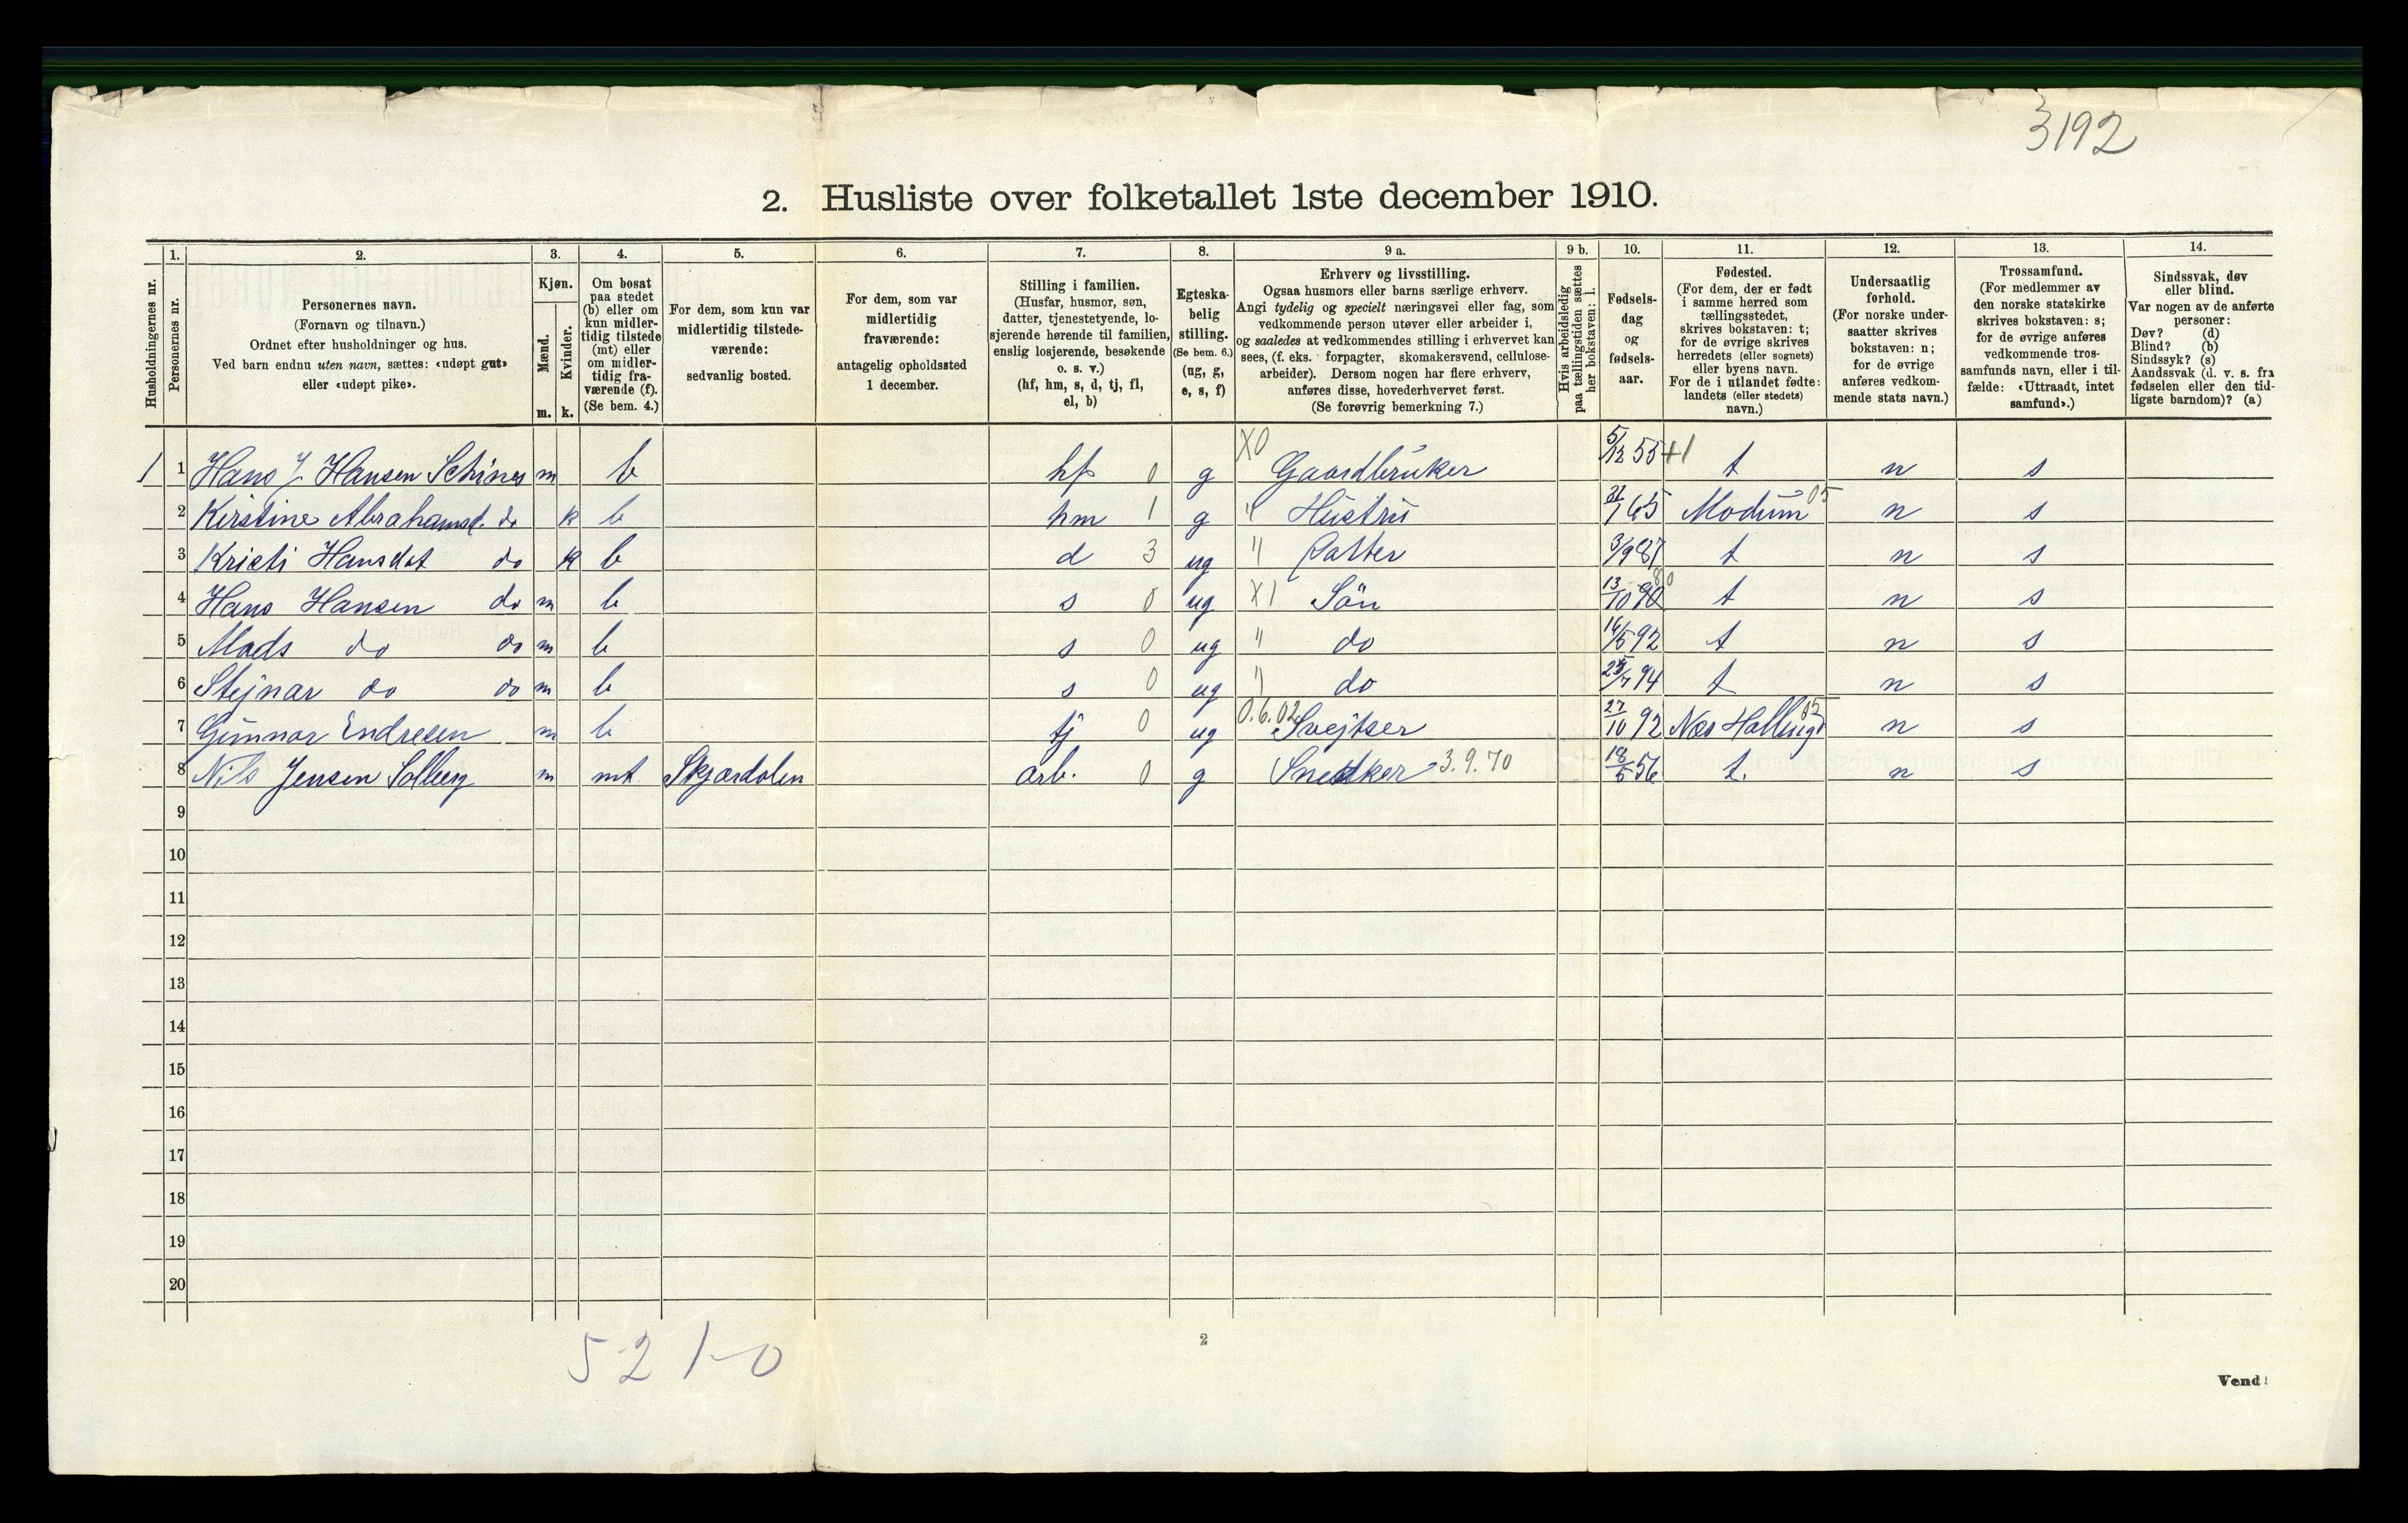 3192
2. Husliste over folketallet 1ste december 1910.
Husholdningernes nr.
1. Personernes nr.
2. Personernes navn. (Fornavn og tilnavn.) Ordnet efter husholdninger og hus. Ved barn endnu uten navn, sættes: «udøpt gut» eller «udøpt pike».
3. Kjøn. Mænd. m. Kvinder. k.
4. Om bosat paa stedet (b) eller om kun midlertidig tilstede (mt) eller om midlertidig fraværende (f). (Se bem. 4.)
5. For dem, som kun var midlertidig tilstedeværende: sedvanlig bosted.
6. For dem, som var midlertidig fraværende: antagelig opholdssted 1 december.
7. Stilling i familien. (Husfar, husmor, søn, datter, tjenestetyende, losjerende hørende til familien, enslig losjerende, besøkende o. s. v.) (hf, hm, s, d, tj, fl, el, b)
8. Egteskabelig stilling. (Se bem. 6.) (ug, g, e, s, f)
9 a. Erhverv og livsstilling. Ogsaa husmors eller barns særlige erhverv. Angi tydelig og specielt næringsvei eller fag, som vedkommende person utøver eller arbeider i, og saaledes at vedkommendes stilling i erhvervet kan sees, (f. eks. forpagter, skomakersvend, cellulosearbeider). Dersom nogen har flere erhverv, anføres disse, hovederhvervet først. (Se forøvrig bemerkning 7.)
9 b. Hvis arbeidsledig paa tællingstiden sættes her bokstaven: l.
10. Fødselsdag og fødselsaar.
11. Fødested. (For dem, der er født i samme herred som tællingsstedet, skrives bokstaven: t; for de øvrige skrives herredets (eller sognets) eller byens navn. For de i utlandet fødte: landets (eller stedets) navn.)
12. Undersaatlig førhold. (For norske undersaatter skrives bokstaven: n; for de øvrige anføres vedkommende stats navn.)
13. Trossamfund. (For medlemmer av den norske statskirke skrives bokstaven: s; for de øvrige anføres vedkommende trossamfunds navn, eller i tilfælde: «Uttraadt, intet samfund».)
14. Sindssvak, døv eller blind. Var nogen av de anførte personer: Døv? (d) Blind? (b) Sindssyk? (s) Aandssvak (d. v. s. fra fødselen eller den tidligste barndom)? (a)
1 1 Hans J. Hansen m b hf 0 g X0 Gaardbruker 5/12 55 +1 t n s
2 Kirstine Abrahamsd. do k b hm 1 g " Hustru 65 Modum 05 n s
3 Kristi Hansdat do k b d 3 ug " Datter 3/9 87 t n s
4 Hans Hansen do m b s 0 ug X1 Søn 13/10 90 t n s
5 Mads do do m b s 0 ug " do 14/5 92 t n s
6 Stejnar do do m b s 0 ug " do 94 t n s
7 Gunnar Endresen m b tj 0 ug 0.6.02 Svejtser 27/10 92 Nes Hallingd 05 n s
8 Nils Jensen Solberg m mt Skjærdalen arb. 0 g Snedker 3.9.70 18/5 56 t. n s
9
10
11
12
13
14
15
16
17
18
19
20
5 2 1-0
2
Vend!